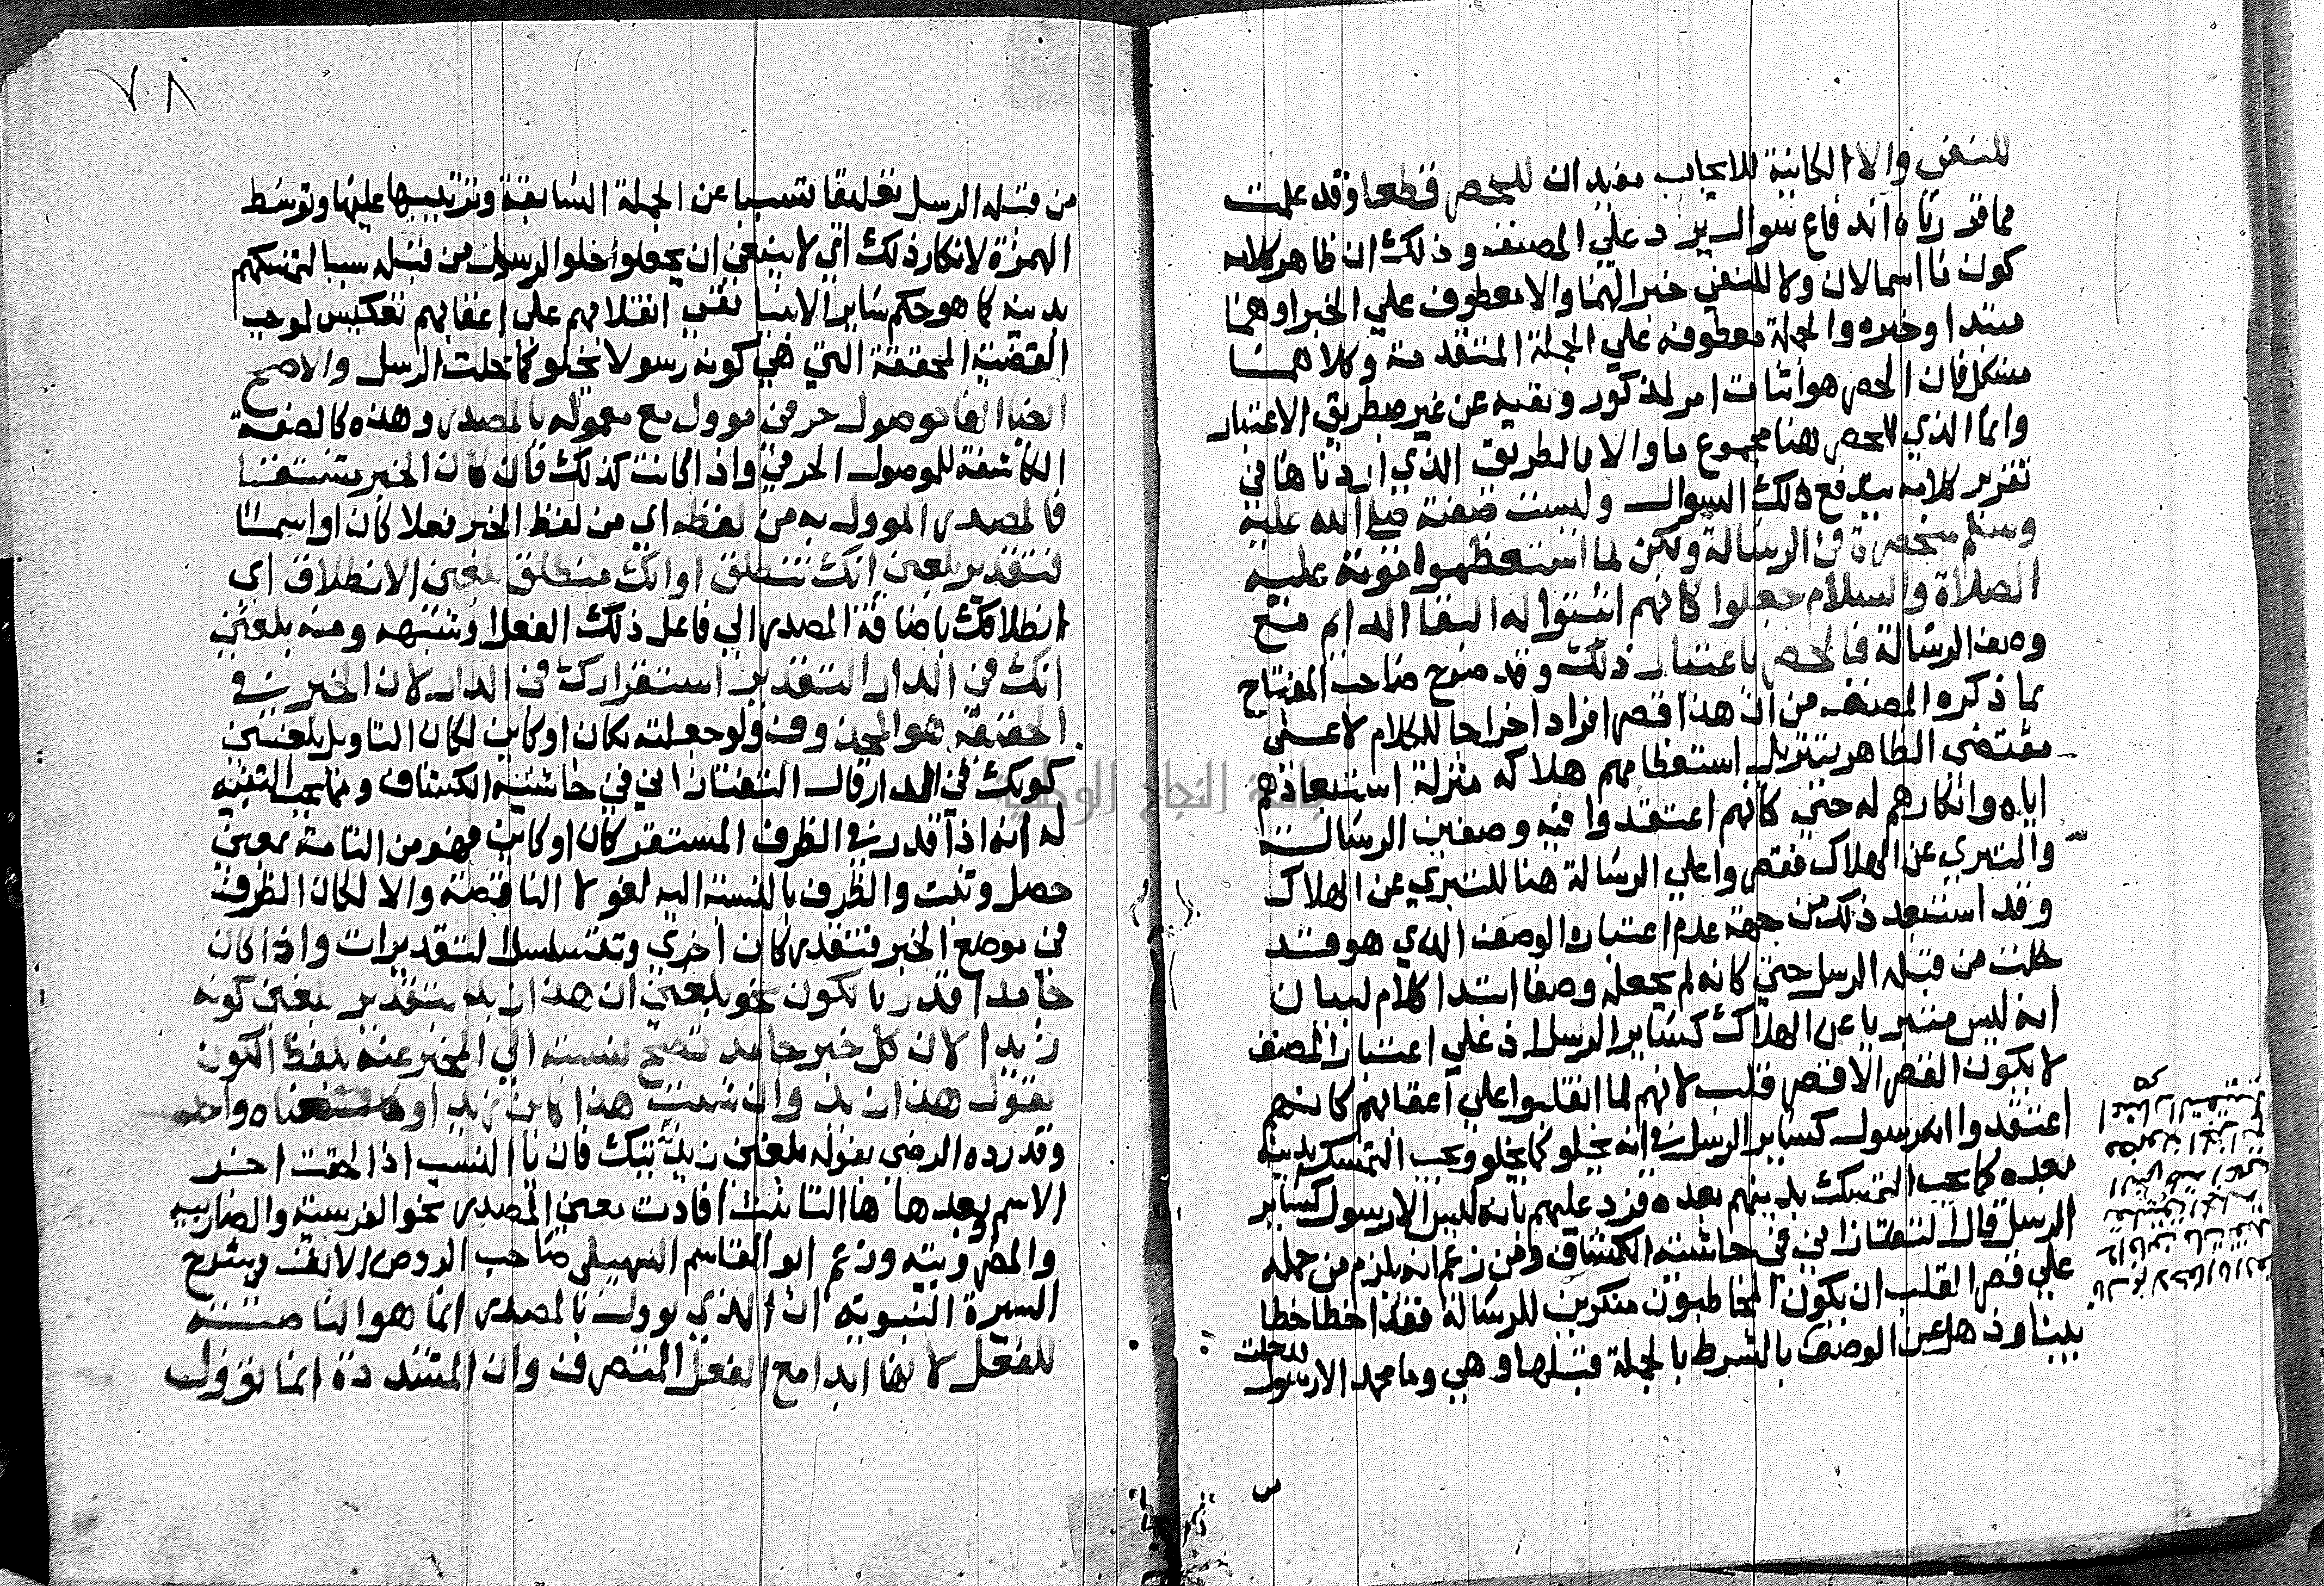 للنفي والا الكائنة للايجاب مفيدان للحصر قطعا وقد علمت
مما قررناه اندفاع سوال يرد علي المصنف وذلك ان ظاهر كلامه
كون ما اسما لان ولا للنفي خبر لهما والا معطوف علي الخبر او هما
مبتدا وخبره والجملة معطوفه علي الجملة المتقدمة وكلاهما
مشكل فان الحصر هو اثبات امر لمذكور ونفيه عن غيره بطريق الاعتبار
وانما الذي للحصر هنا مجموع ما والا بالطريق الذي اردناها في
تقرير كلامه يندفع ذلك السوال وليست صفته صلي الله عليه
وسلم منحصرة في الرسالة ولكن لما استعظموا موته عليه
الصلاة والسلام جعلوا كانهم اثبتوا له البقا الدايم مع
وصف الرسالة فالحصر باعتبار ذلك وقد صرح صاحب المفتاح
بما ذكره المصنف من ان هذا قصر افراد اخراجا للكلام لا علي
مقتضي الظاهر بتنزيل استعظامهم هلاكه منزلة استبعادهم
اياه وانكارهم له حتي كانهم اعتقدوا فيه وصفين الرسالة
والتبري عن الهلاك فقصروا علي الرسالة هنا للتبري عن الهلاك
وقد استبعد ذلك من جهة عدم اعتبار الوصف الذي هو قد
خلت من قبله الرسل حتي كانه لم يجعله وصفا ابتدا كلام لبيان
انه ليس متبريا عن الهلاك كساير الرسل اذ علي اعتبار المصنف
لا يكون القصر الا قصر قلب لانهم لما انقلبوا علي اعقابهم كانهم
اعتقدوا انه رسول كساير الرسل في انه يخلو كما يخلو ويجب التمسك بدينه
بعده كما يجب التمسك بدينهم بعده فرد عليهم بانه ليس الا رسول كساير
الرسل قال التفتازاني في حاشية الكشاف ومن زعم انه يلزم من حمله
علي قصر القلب ان يكون المخاطبون منكرين للرسالة فقد اخطا خطا
بينا وذهل عن الوصف بالشرط بالجملة قبلها وهي وما محمد الا رسول
قد خلت
٧٠٨
من قبله الرسل تعليقا تسببا عن الجملة السابقة وترتيبها عليها وتوسط
الهمزة لانكار ذلك اي لا ينبغي ان يجعلوا خلو الرسول من قبله سببا لتمسكهم
بدينه كما هو حكم ساير الانبيا نفي انقلابهم علي اعقابهم تعكيس لموجب
القضية المحققة التي هي كونه رسولا يخلو كما خلت الرسل والاصح
ايضا انها موصول حرفي موول مع معموله بالمصدر وهذه كالصفة
الكاشفة للموصول الحرفي واذا كانت كذلك فان كان الخبر مشتقا
فالمصدر الموول به من لفظه اي من لفظ الخبر فعلا كان او اسما
فتقدير بلغني انك تنطلق او انك منطلق بلغني الانطلاق اي
انطلاقك باضافة المصدر الي فاعل ذلك الفعل او شبهه ومنه بلغني
انك في الدار التقدير استقرارك في الدار لان الخبر في
الحقيقة هو المحذوف ولو جعلته كان او كاين لكان التاويل بلغني
كونك في الدار قال التفتازاني في حاشية الكشاف ومما يجب التنبيه
له انه اذا قدر في الظرف المستقر كان او كاين فهو من التامة بمعني
حصل وثبت والظرف بالنسبة اليه لغو لا الناقصة والا لكان الظرف
في موضع الخبر فتقدر كان اخري وتتسلسل التقديرات واذا كان
جامدا قدر بالكون نحو بلغني ان هذا زيد بتقدير بلغني كونه
زيدا لان كل خبر جامد تصح نسبته الي المخبر عنه بلفظ الكون
تقول هذا زيد وان شيت هذا كاين زيد او معناه واحد
وقد رده الرضي بقوله بلغني زيديتك فان يا النسب اذا لحقت اخر
الاسم وبعدها ها التانيث افادت معني المصدر نحو الفرسية والضاربيه
والمضروبيه وزعم ابو القاسم السهيلي صاحب الروض الانف وشرح
السيرة النبويه ان الذي يوول بالمصدر انما هو الناصبة
للفعل لانها ابدا مع الفعل المتصرف وان المشددة انما توول